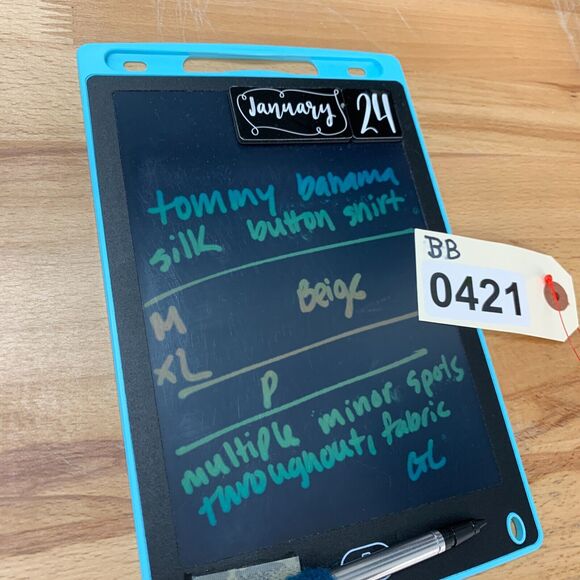 January 24
tommy bahama
silk button shirt
BB
0421
M Beige
XL
P
multiple minor spots
throughout, fabric
GL